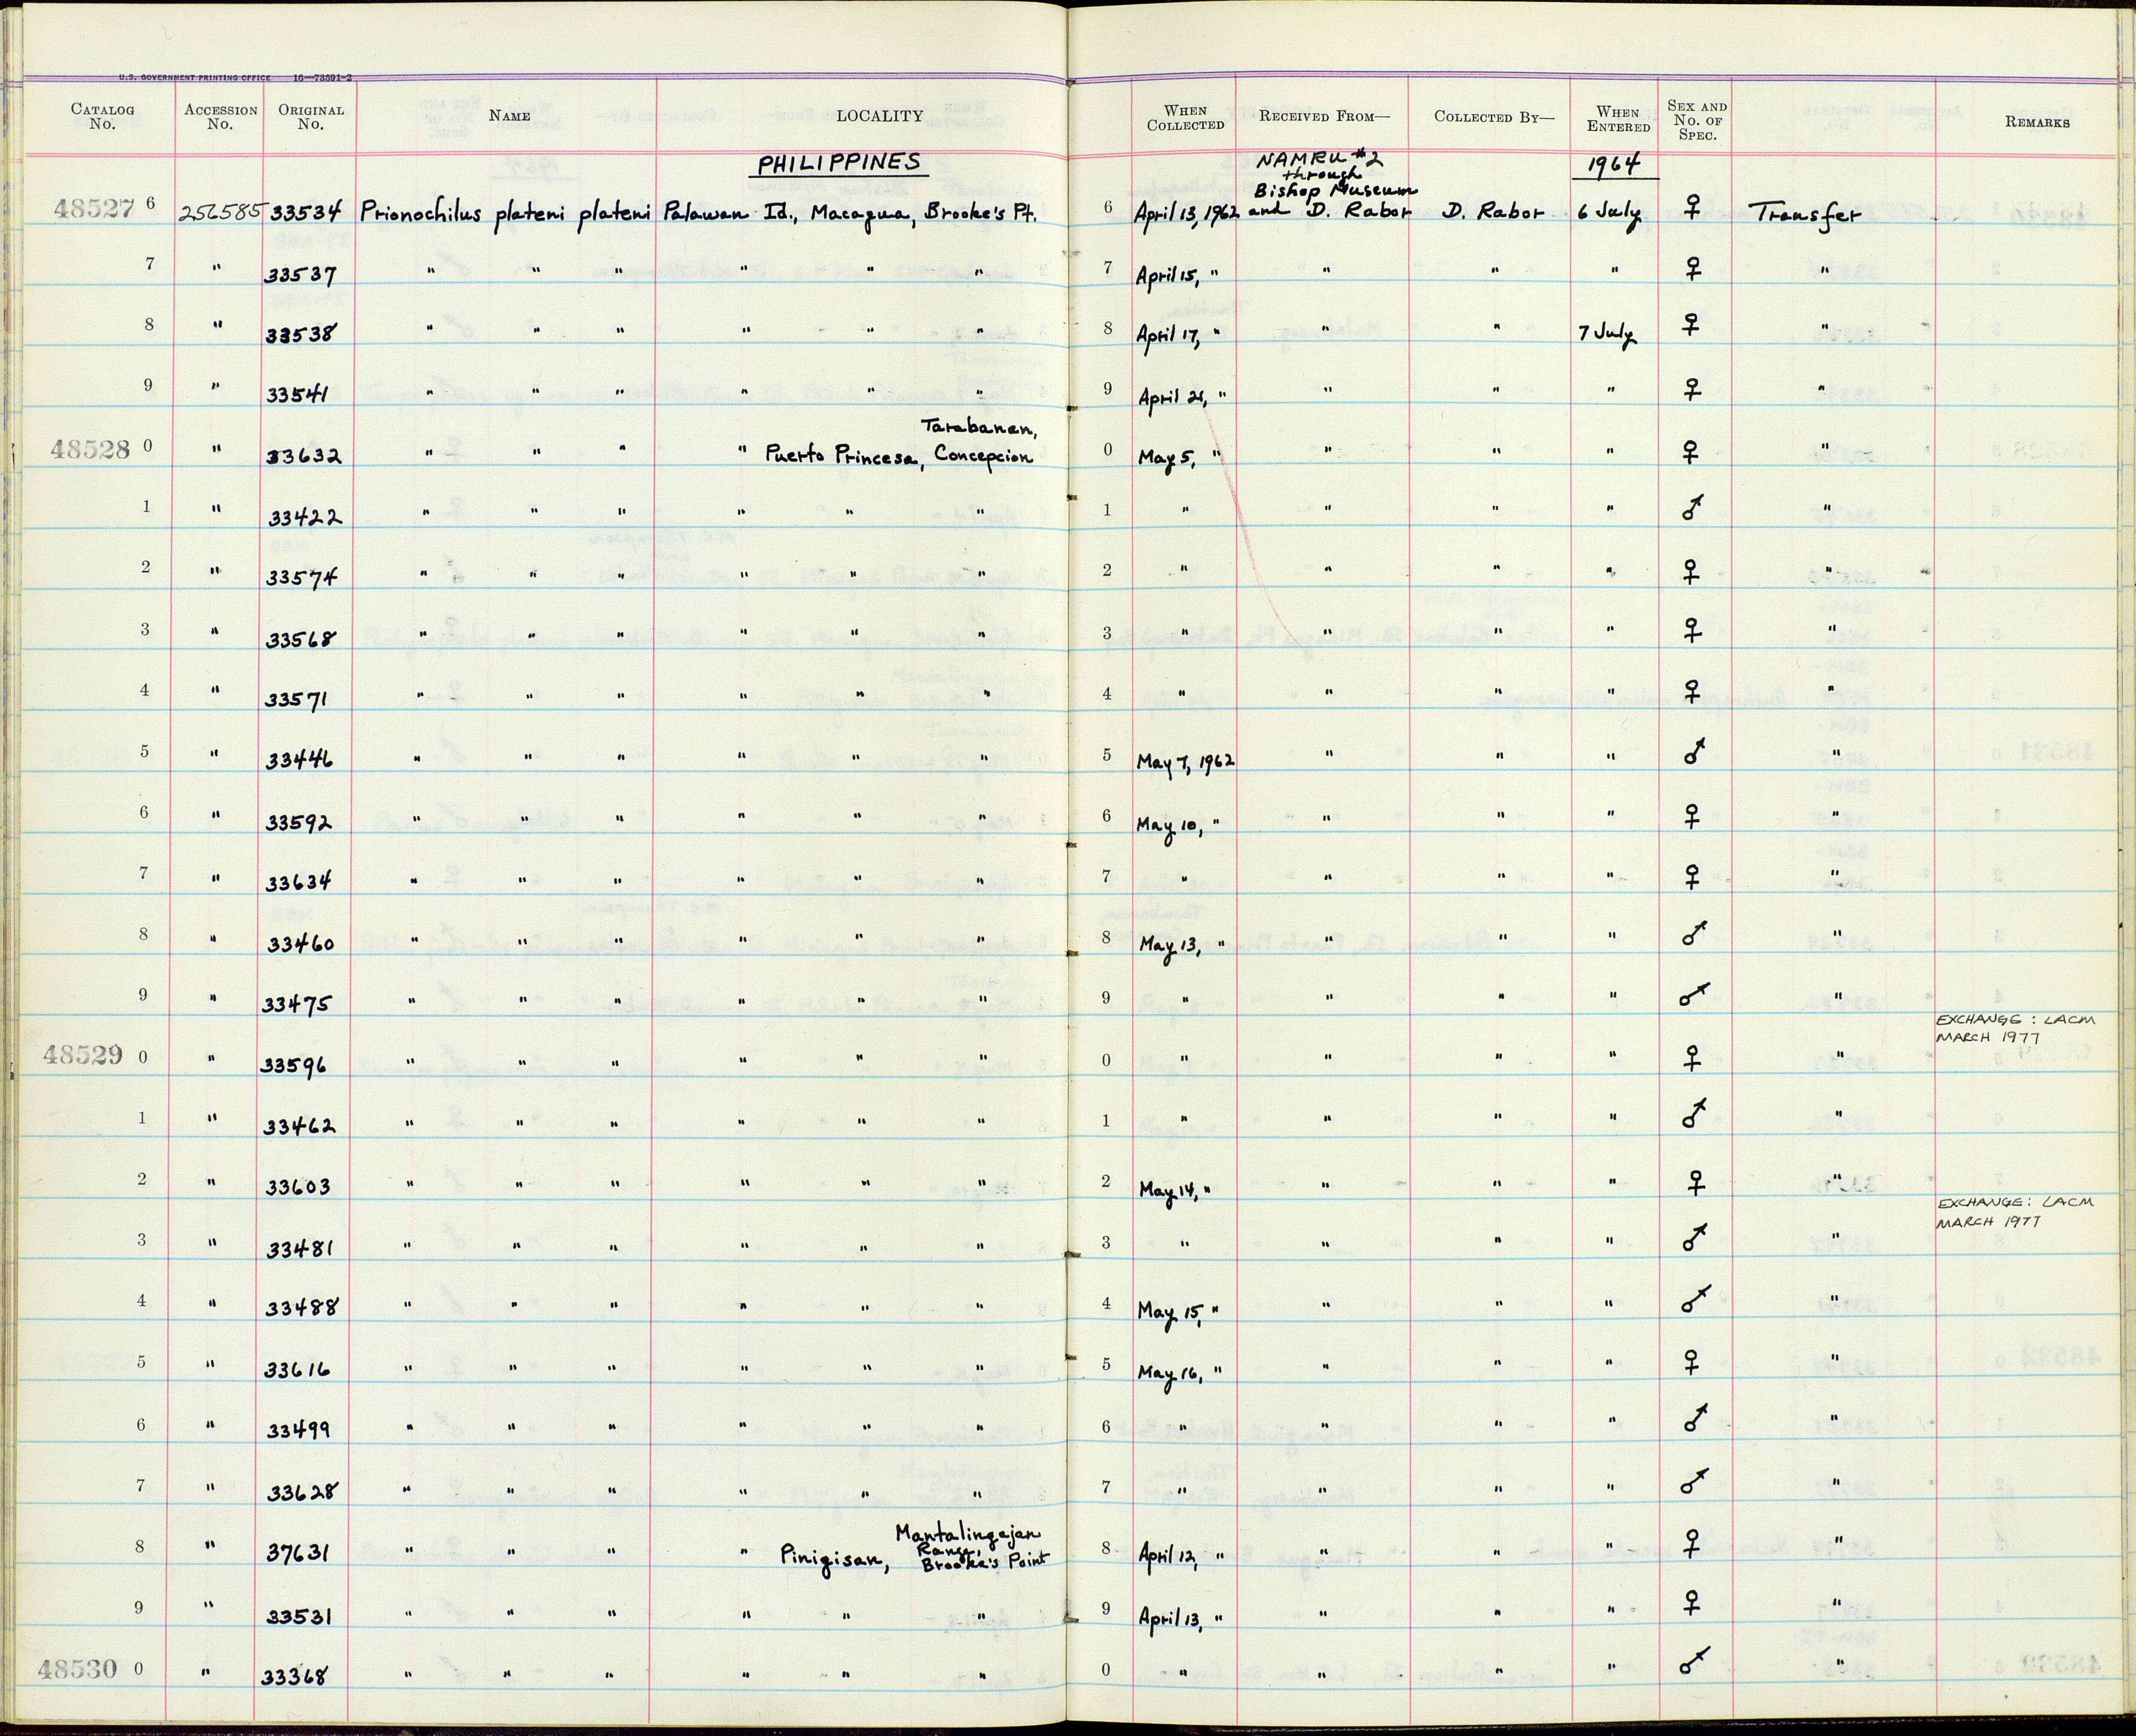 U.S. GOVERNMENT PRINTING OFFICE 16—73591-2
CATALOG No. ACCESSION No. ORIGINAL No. NAME LOCALITY WHEN COLLECTED RECEIVED FROM— COLLECTED BY— WHEN ENTERED SEX AND No. OF SPEC. REMARKS
PHILIPPINES NAMRU #2 through Bishop Museum 1964
48527 6 256585 33534 Prionochilus plateni plateni Palawan Id., Macagua, Brooke's Pt. 6 April 13, 1962 and D. Rabor D. Rabor 6 July ♀ Transfer
7 " 33537 " " " " " " 7 April 15, " " " " ♀ "
8 " 33538 " " " " " " 8 April 17, " " " 7 July ♀ "
9 " 33541 " " " " " " 9 April 21, " " " " ♀ "
Tarabanan,
48528 0 " 33632 " " " " Puerto Princesa, Concepcion 0 May 5, " " " " ♀ "
1 " 33422 " " " " " " 1 " " " " ♂ "
2 " 33574 " " " " " " 2 " " " " ♀ "
3 " 33568 " " " " " " 3 " " " " ♀ "
4 " 33571 " " " " " " 4 " " " " ♀ "
5 " 33446 " " " " " " 5 May 7, 1962 " " " ♂ "
6 " 33592 " " " " " " 6 May 10, " " " " ♀ "
7 " 33634 " " " " " " 7 " " " " ♀ "
8 " 33460 " " " " " " 8 May 13, " " " " ♂ "
9 " 33475 " " " " " " 9 " " " " ♂ "
EXCHANGE: LACM
MARCH 1977
48529 0 " 33596 " " " " " " 0 " " " " ♀ "
1 " 33462 " " " " " " 1 " " " " ♂ "
2 " 33603 " " " " " " 2 May 14, " " " " ♀ "
EXCHANGE: LACM
MARCH 1977
3 " 33481 " " " " " " 3 " " " " ♂ "
4 " 33488 " " " " " " 4 May 15, " " " " ♂ "
5 " 33616 " " " " " " 5 May 16, " " " " ♀ "
6 " 33499 " " " " " " 6 " " " " ♂ "
7 " 33628 " " " " " " 7 " " " " ♂ "
Mantalingajan
Range,
8 " 37631 " " " " Pinigisan, Brooke's Point 8 April 12, " " " " ♀ "
9 " 33531 " " " " " " 9 April 13, " " " " ♀ "
48530 0 " 33368 " " " " " " 0 " " " " ♂ "